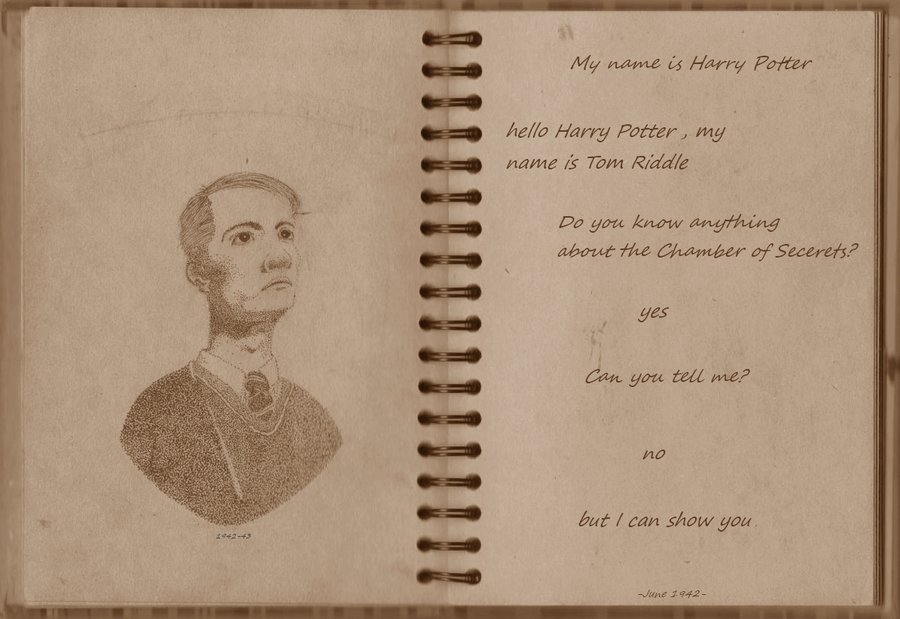 1942-43
My name is Harry Potter
hello Harry Potter , my
name is Tom Riddle
Do you know anything
about the Chamber of Secerets?
yes
Can you tell me?
no
but I can show you
-June 1942-